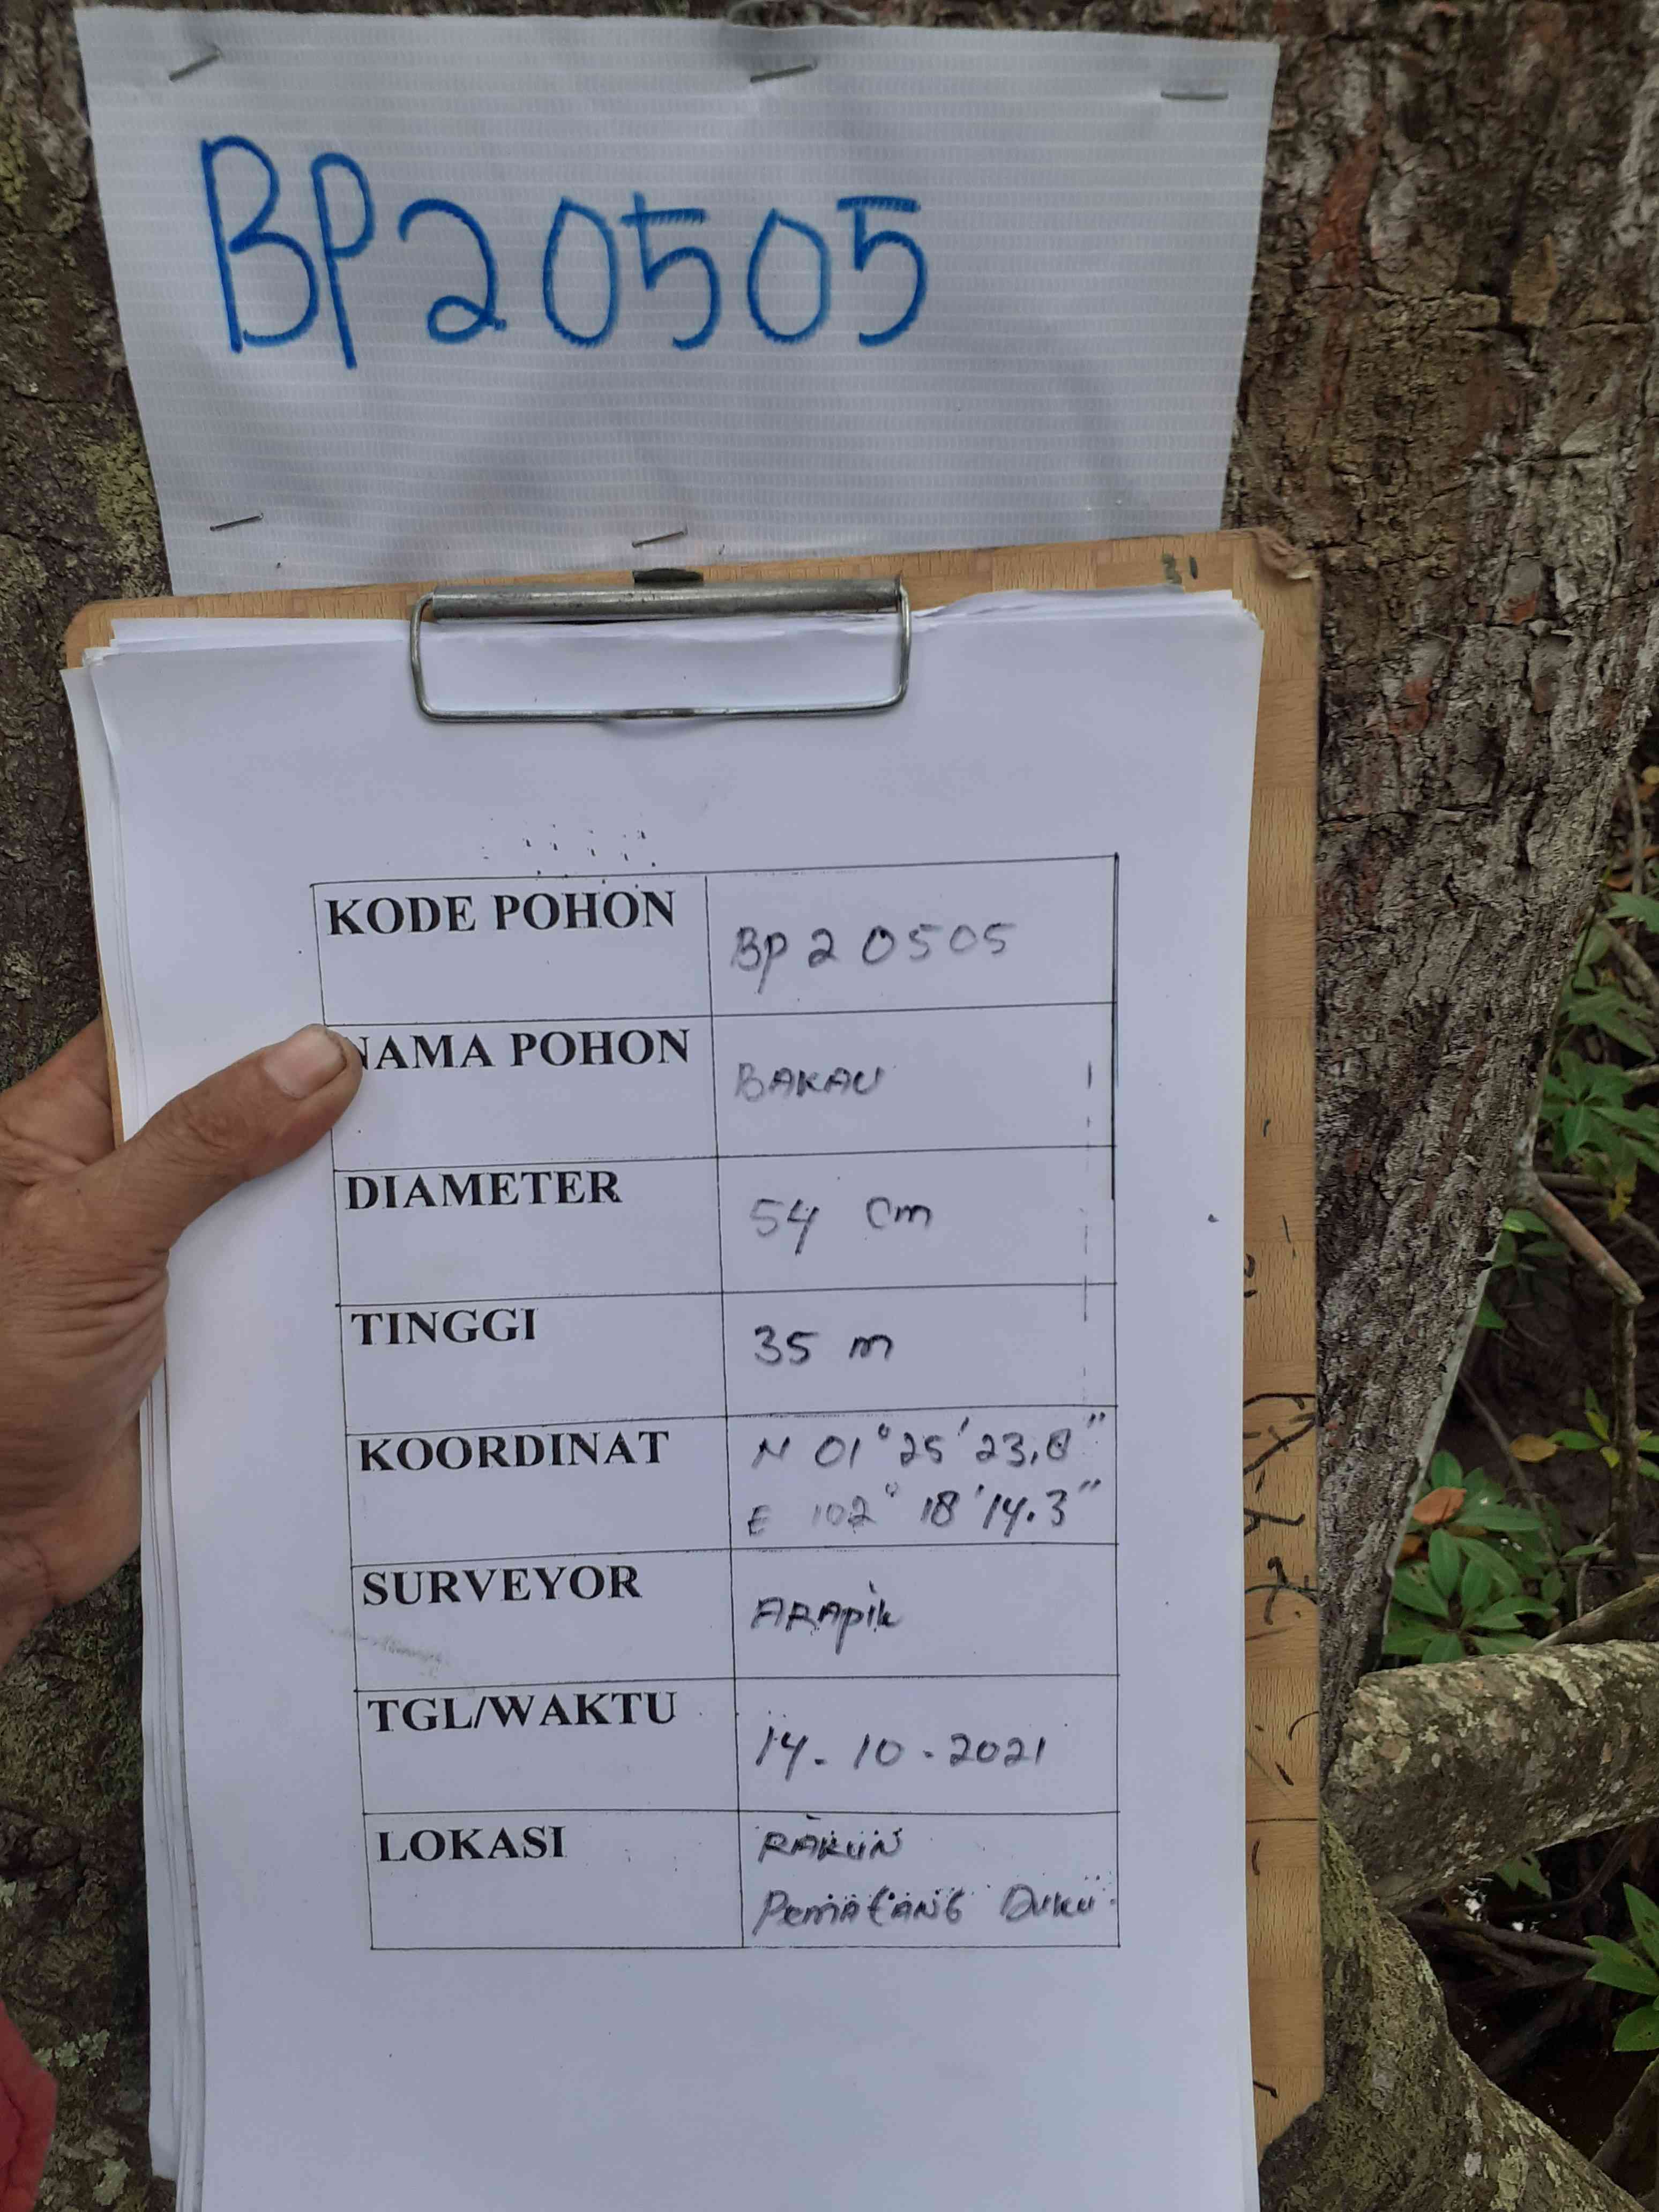 BP20505
KODE POHON
BP20505
NAMA POHON
BAKAU
DIAMETER
54 cm
TINGGI
35 m
KOORDINAT
N 01° 25' 23,8"
E 102° 18' 14.3"
SURVEYOR
ARApik
TGL/WAKTU
14-10-2021
LOKASI
RAKUN
PemATANG DUKU